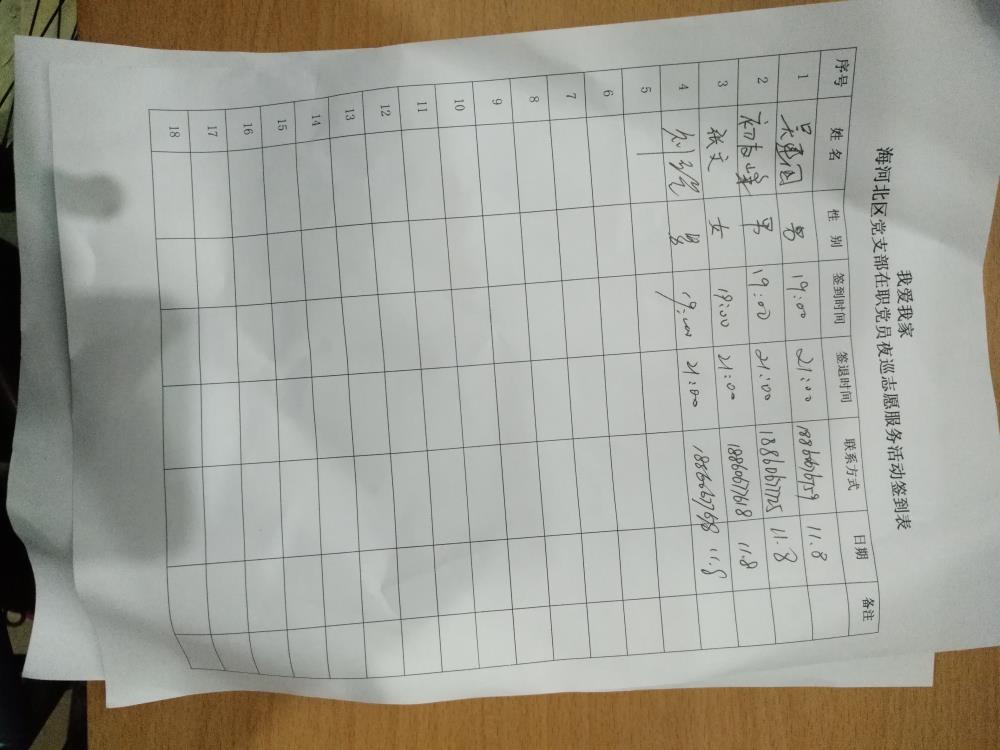 我爱我家
海河北区党支部在职党员夜巡志愿服务活动签到表
序号 姓名 性别 签到时间 签退时间 联系方式 日期 备注
1 吴建国 男 19:00 21:00 11.8
2 初春峰 男 19:00 21:00 18860677725 11.8
3 张文 女 19:00 21:00 18860677618 11.8
4 男 19:00 21:00 11.8
5
6
7
8
9
10
11
12
13
14
15
16
17
18